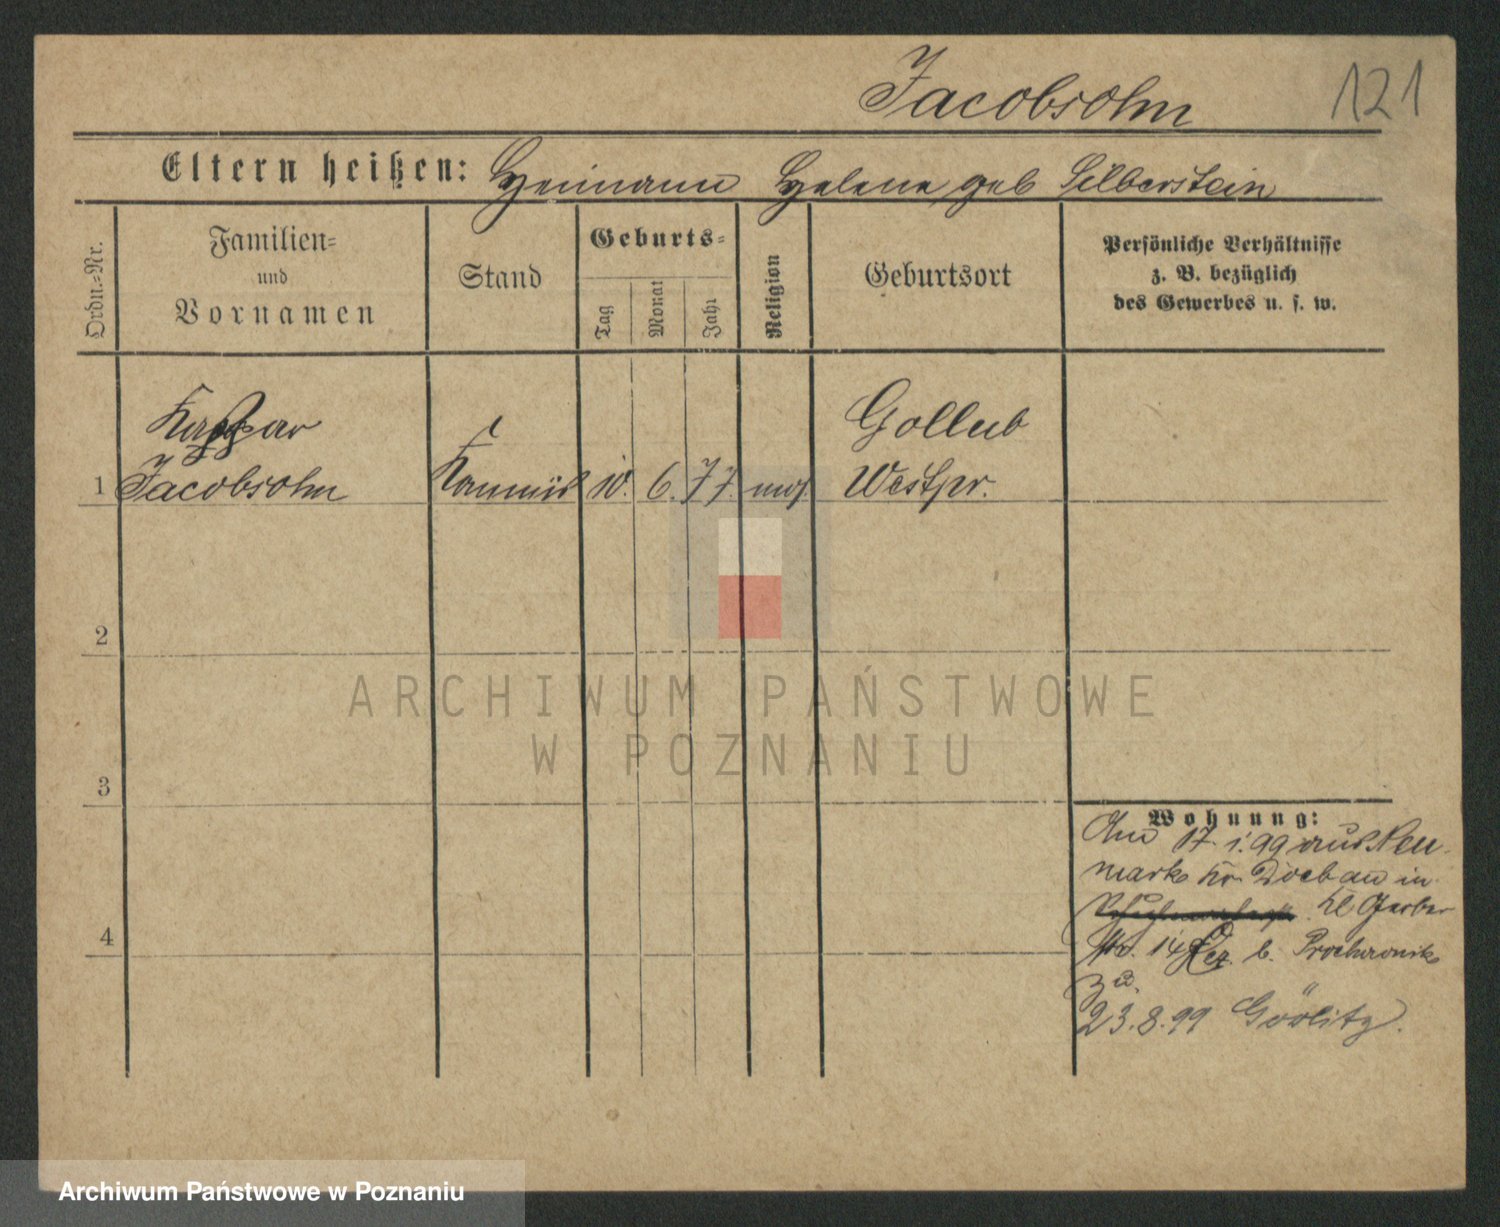 Jacobsohn
121
Eltern heißen: Heimann Helene geb Silberstein
Ordn.=Nr.
Familien=
und
Vornamen
Stand
Geburts=
Tag
Monat
Jahr
Religion
Geburtsort
Persönliche Verhältnisse
z. B. bezüglich
des Gewerbes u. s. w.
Kaspar
Gollub
1 Jacobsohn 10. 6. 77. mos. Westpr.
2
ARCHIWUM PAŃSTWOWE
W POZNANIU
3
Wohnung:
Am 17. 1. 99 aus Neu-
mark Kr. in
4
Kl Gerber
Str. 14 b.
23. 8. 99 Görlitz.
Archiwum Państwowe w Poznaniu